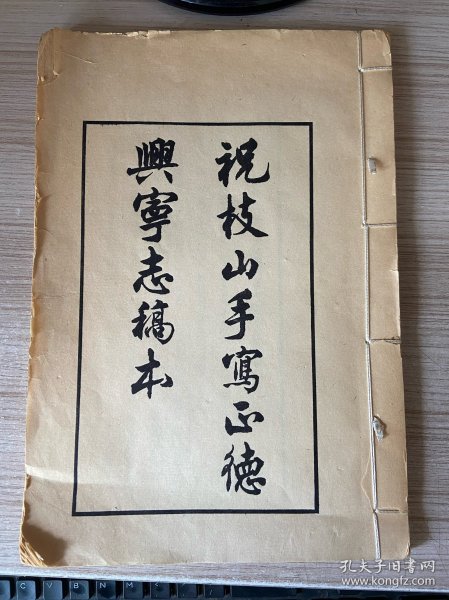 祝枝山手寫正德
興寧志稿本
孔夫子旧书网
www.kongfz.com
C V B N M